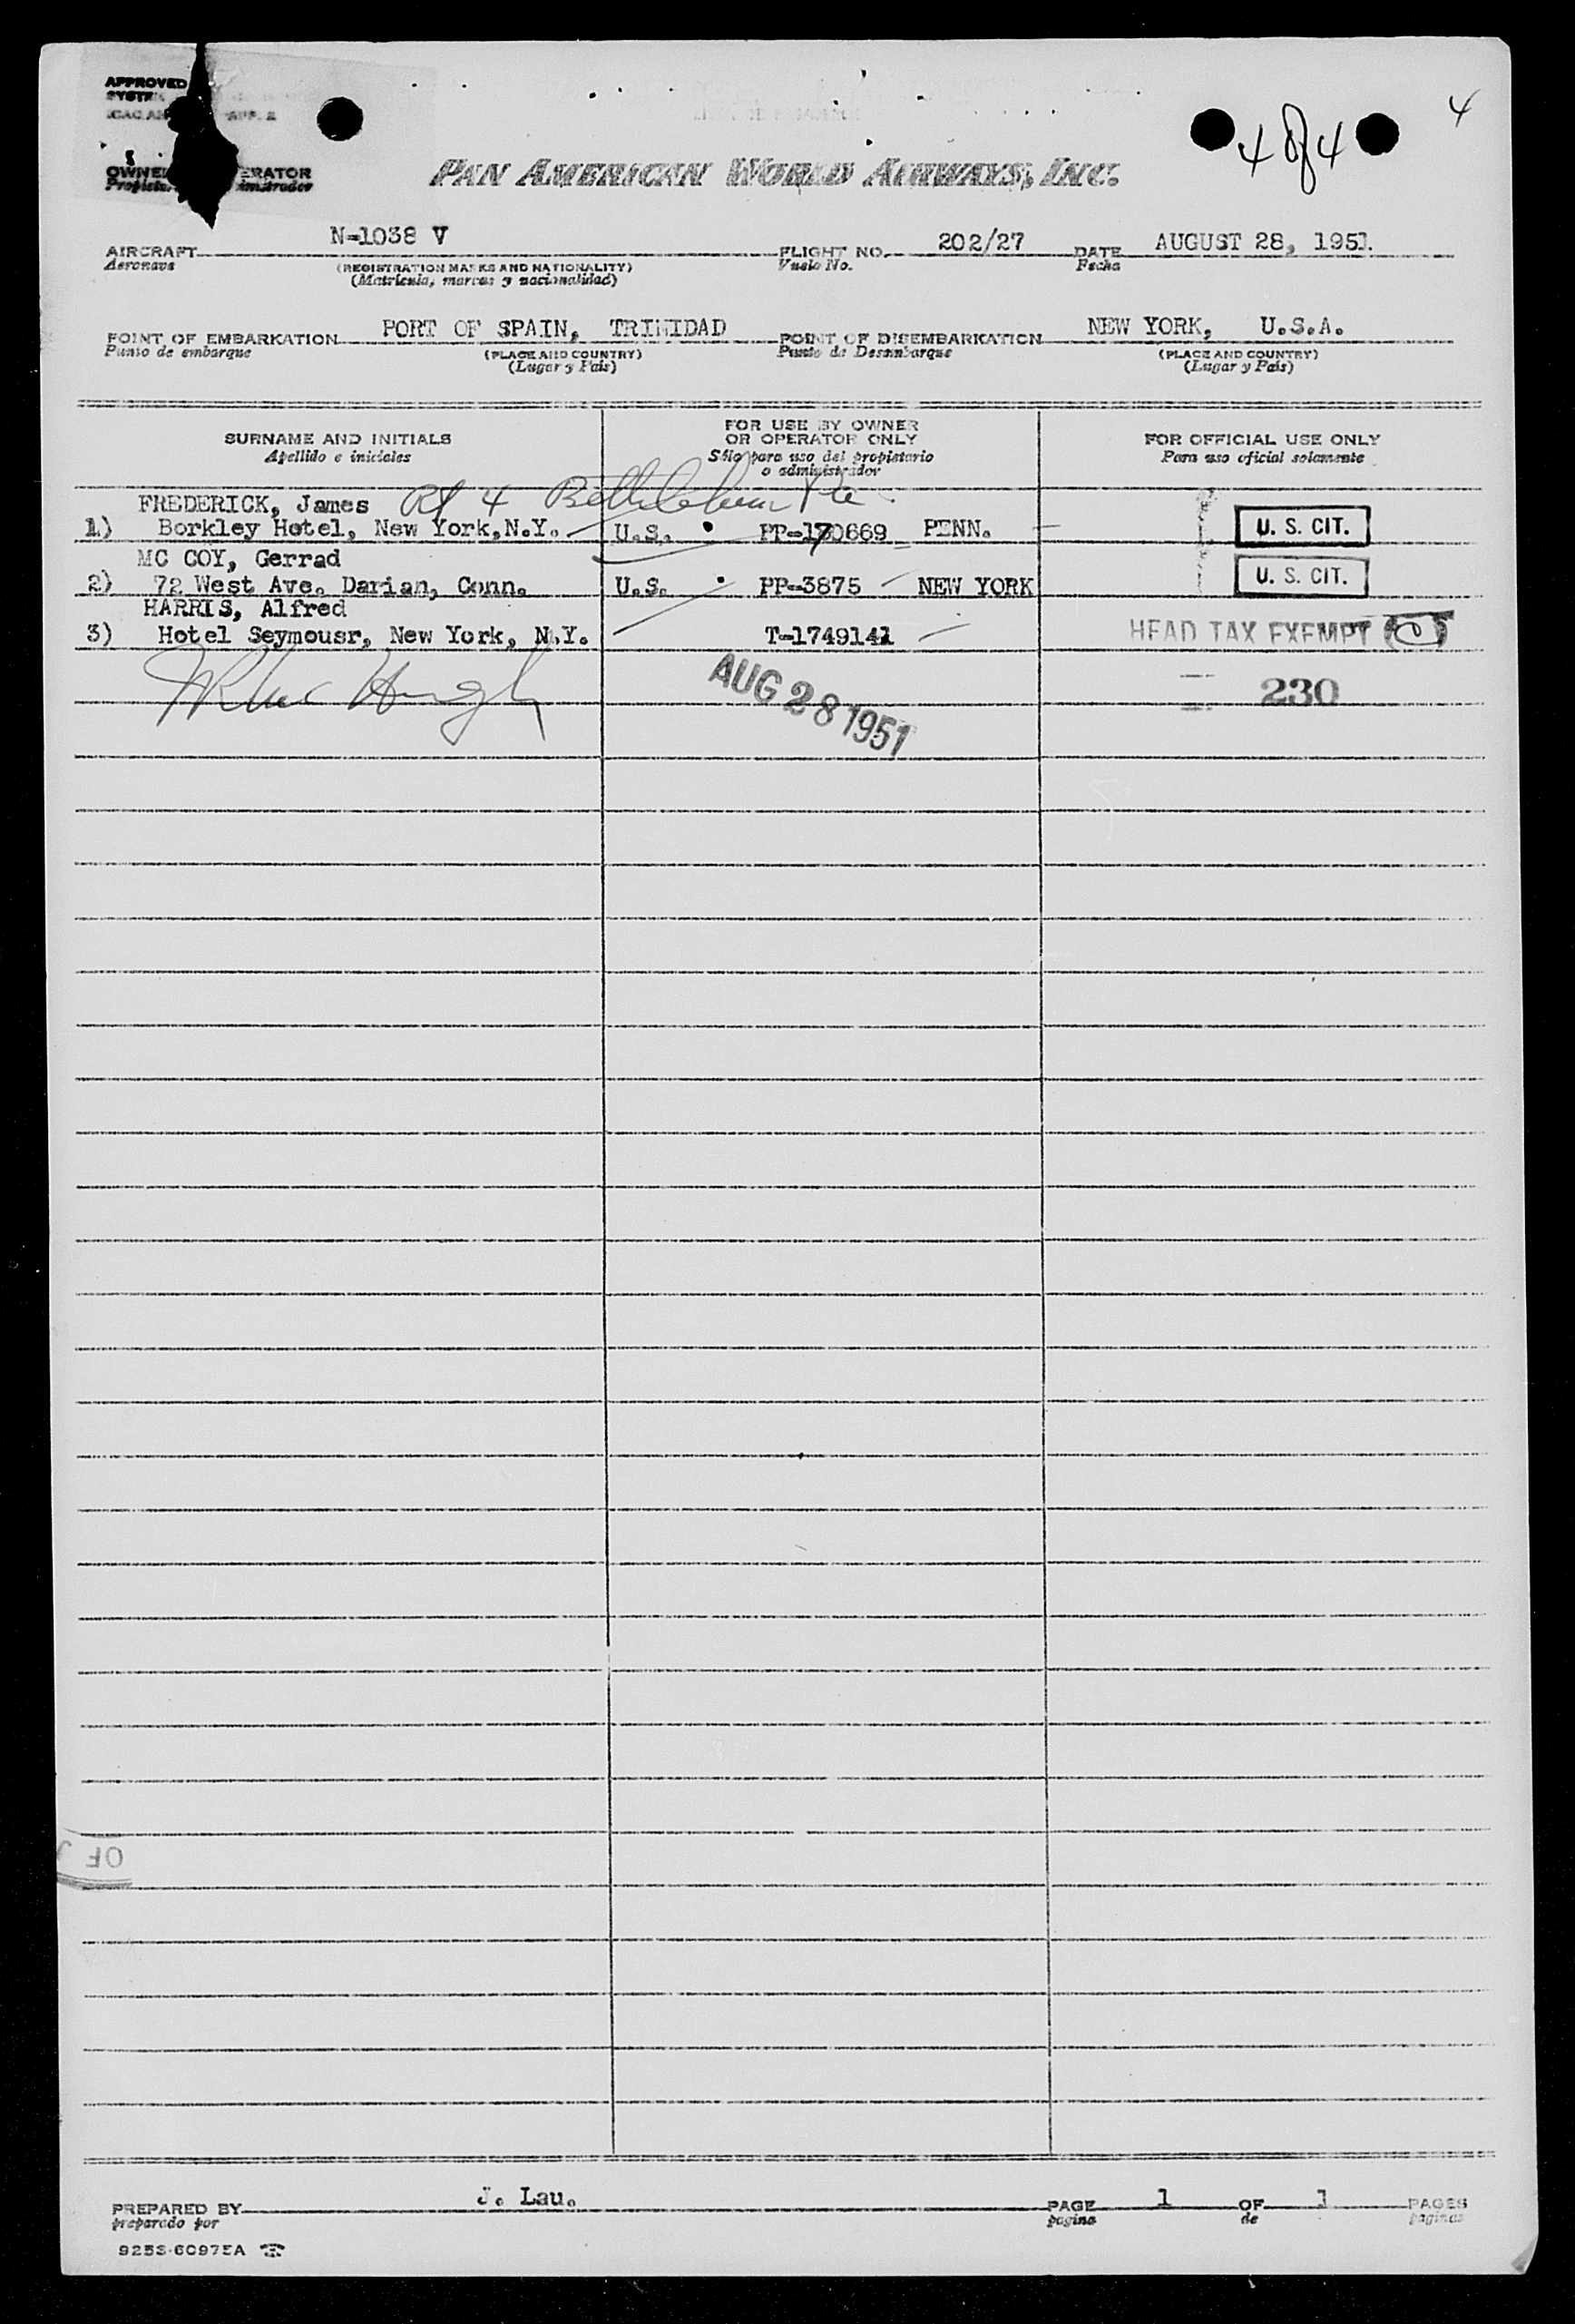 APPROVED
4
4 of 4
PAN AMERICAN WORLD AIRWAYS, INC.
AIRCRAFT N-1038 V FLIGHT NO. 202/27 DATE AUGUST 28, 1951.
Aeronave (REGISTRATION MARKS AND NATIONALITY) Vuelo No. Fecha
(Matricula, marcas y nacionalidad)
POINT OF EMBARKATION PORT OF SPAIN, TRINIDAD POINT OF DISEMBARKATION NEW YORK, U.S.A.
Punto de embarque (PLACE AND COUNTRY) Punto de Desembarque (PLACE AND COUNTRY)
(Lugar y País) (Lugar y País)
SURNAME AND INITIALS FOR USE BY OWNER OR OPERATOR ONLY FOR OFFICIAL USE ONLY
Apellido e iniciales Sólo para uso del propietario o administrador Para uso oficial solamente
FREDERICK, James Rt 4 Bethlehem Pa
1) Borkley Hotel, New York,N.Y. U.S. PP-170669 PENN. U. S. CIT.
MC COY, Gerrad
2) 72 West Ave. Darian, Conn. U.S. PP-3875 NEW YORK U. S. CIT.
HARRIS, Alfred
3) Hotel Seymousr, New York, N.Y. T-1749141 HEAD TAX EXEMPT
AUG 28 1951 230
OF
PREPARED BY J. Lau. PAGE 1 OF 1 PAGES
preparado por pagina de paginas
925S-6097EA